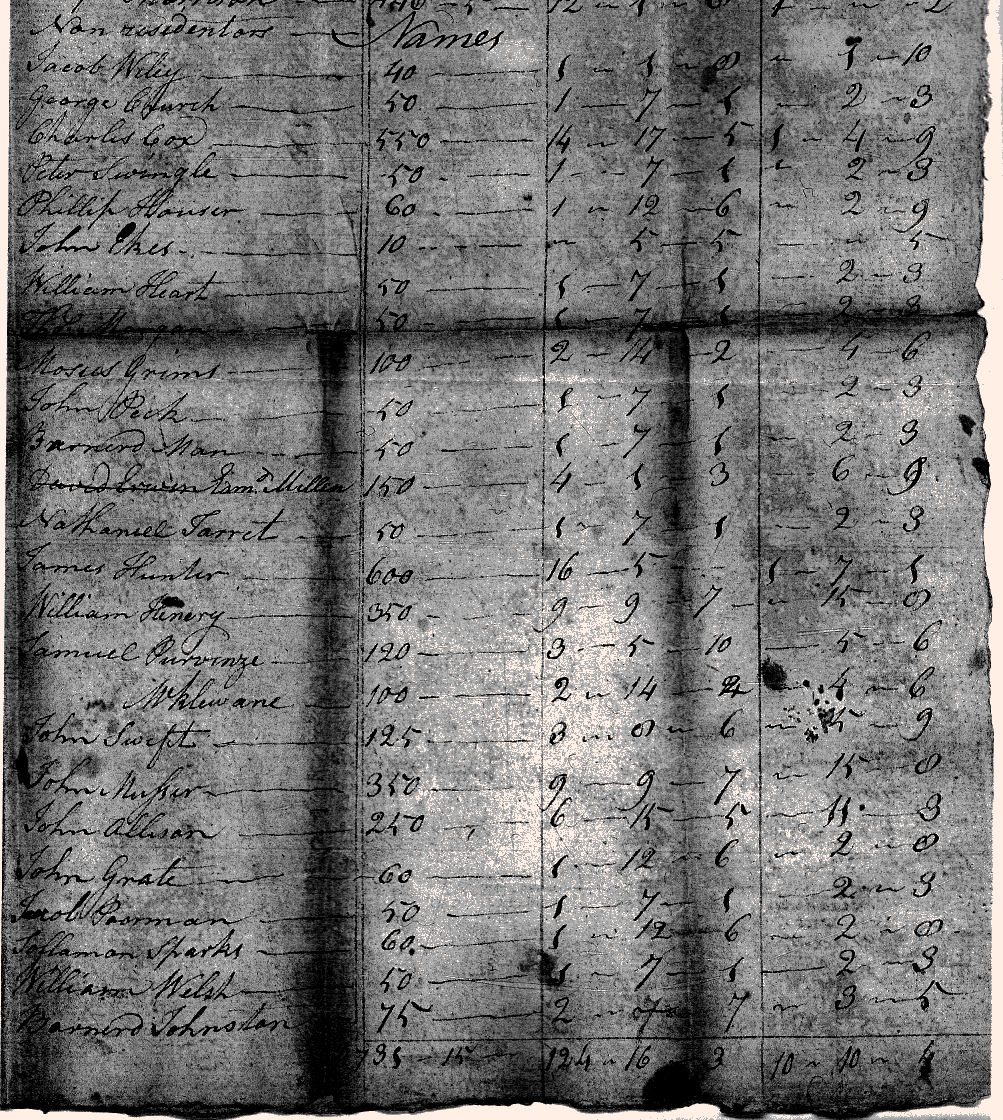 Non residentors — Names
Jacob Wiley — 40 — 1 – 1 – 8 – 1 – 10
George Church — 50 — 1 – 7 – 1 – 2 – 3
Charles Cox — 550 — 14 – 17 – 5 1 – 4 – 9
Peter Swingle — 50 — 1 – 7 – 1 – 2 – 3
Phillip Houser — 60 — 1 – 12 – 6 – 2 – 9
John Ekes — 10 — – 5 – 5 – – 5
William Heart — 50 — 1 – 7 – 1 – 2 – 3
Morgan — 50 — 1 – 7 – 1 – 2 – 3
Moses Grims — 100 — 2 – 14 – 2 – 4 – 6
John Peck — 50 — 1 – 7 – 1 – 2 – 3
Barnerd Man — 50 — 1 – 7 – 1 – 2 – 3
David Miller 150 — 4 – 1 – 3 – 6 – 9
Nathaniel Jarret — 50 — 1 – 7 – 1 – 2 – 3
James Hunter — 600 — 16 – 5 – 1 – 7 – 1
William Henery — 350 — 9 – 9 – 7 – 15 – 8
Samuel Purvinze — 120 — 3 – 5 – 10 – 5 – 6
McKlewane — 100 — 2 – 14 – 2 – 4 – 6
John Swift — 125 — 3 – 8 – 6 – 5 – 9
John Musser — 350 — 9 – 9 – 7 – 15 – 8
John Allison — 250 — 6 – 15 – 5 – 11 – 3
John Grate — 60 — 1 – 12 – 6 – 2 – 8
Jacob Poorman — 50 — 1 – 7 – 1 – 2 – 3
Sollaman Sparks — 60 — 1 – 12 – 6 – 2 – 8
William Welsh — 50 — 1 – 7 – 1 – 2 – 3
Barnerd Johnston — 75 — 2 – 0 – 7 – 3 – 5
735 – 15 – 124 – 16 3 10 – 10 – 4